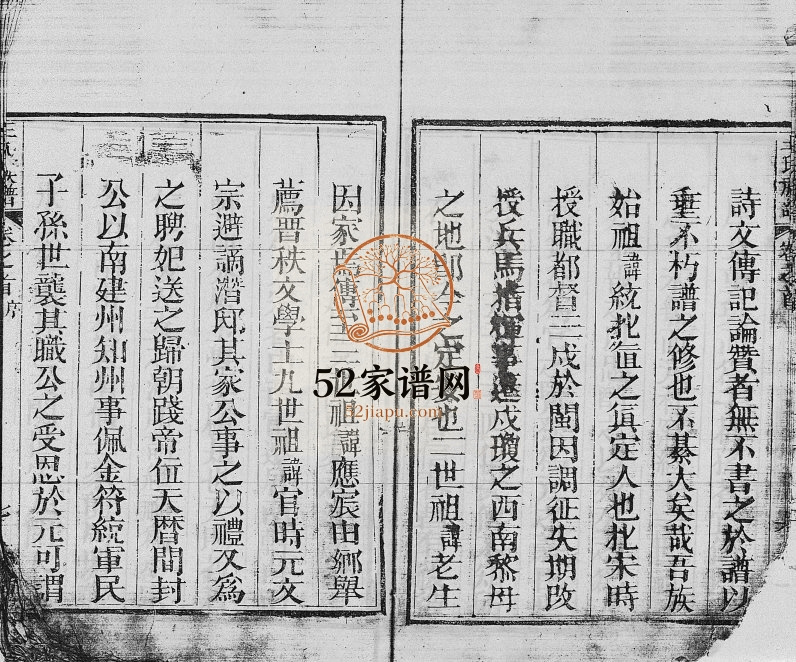 詩文傳記論贊者無不書之於譜以
垂不朽譜之修也不綦大矣哉吾族
始祖諱統北直之真定人也北宋時
授職都督三戍於閩因調征失期改
授兵馬指揮事遷戍瓊之西南黎母
之地即今之定安也二世祖諱老生
因家焉傳至三世祖諱應宸由鄉舉
薦晋秩文學士九世祖諱官時元文
宗避謫潛邸其家公事之以禮及為
之聘妃送之歸朝踐帝位天曆間封
公以南建州知州事佩金符統軍民
子孫世襲其職公之受恩於元可謂
王氏族譜 卷之首
王氏族譜 卷之首 序
52家谱网
52jiapu.com